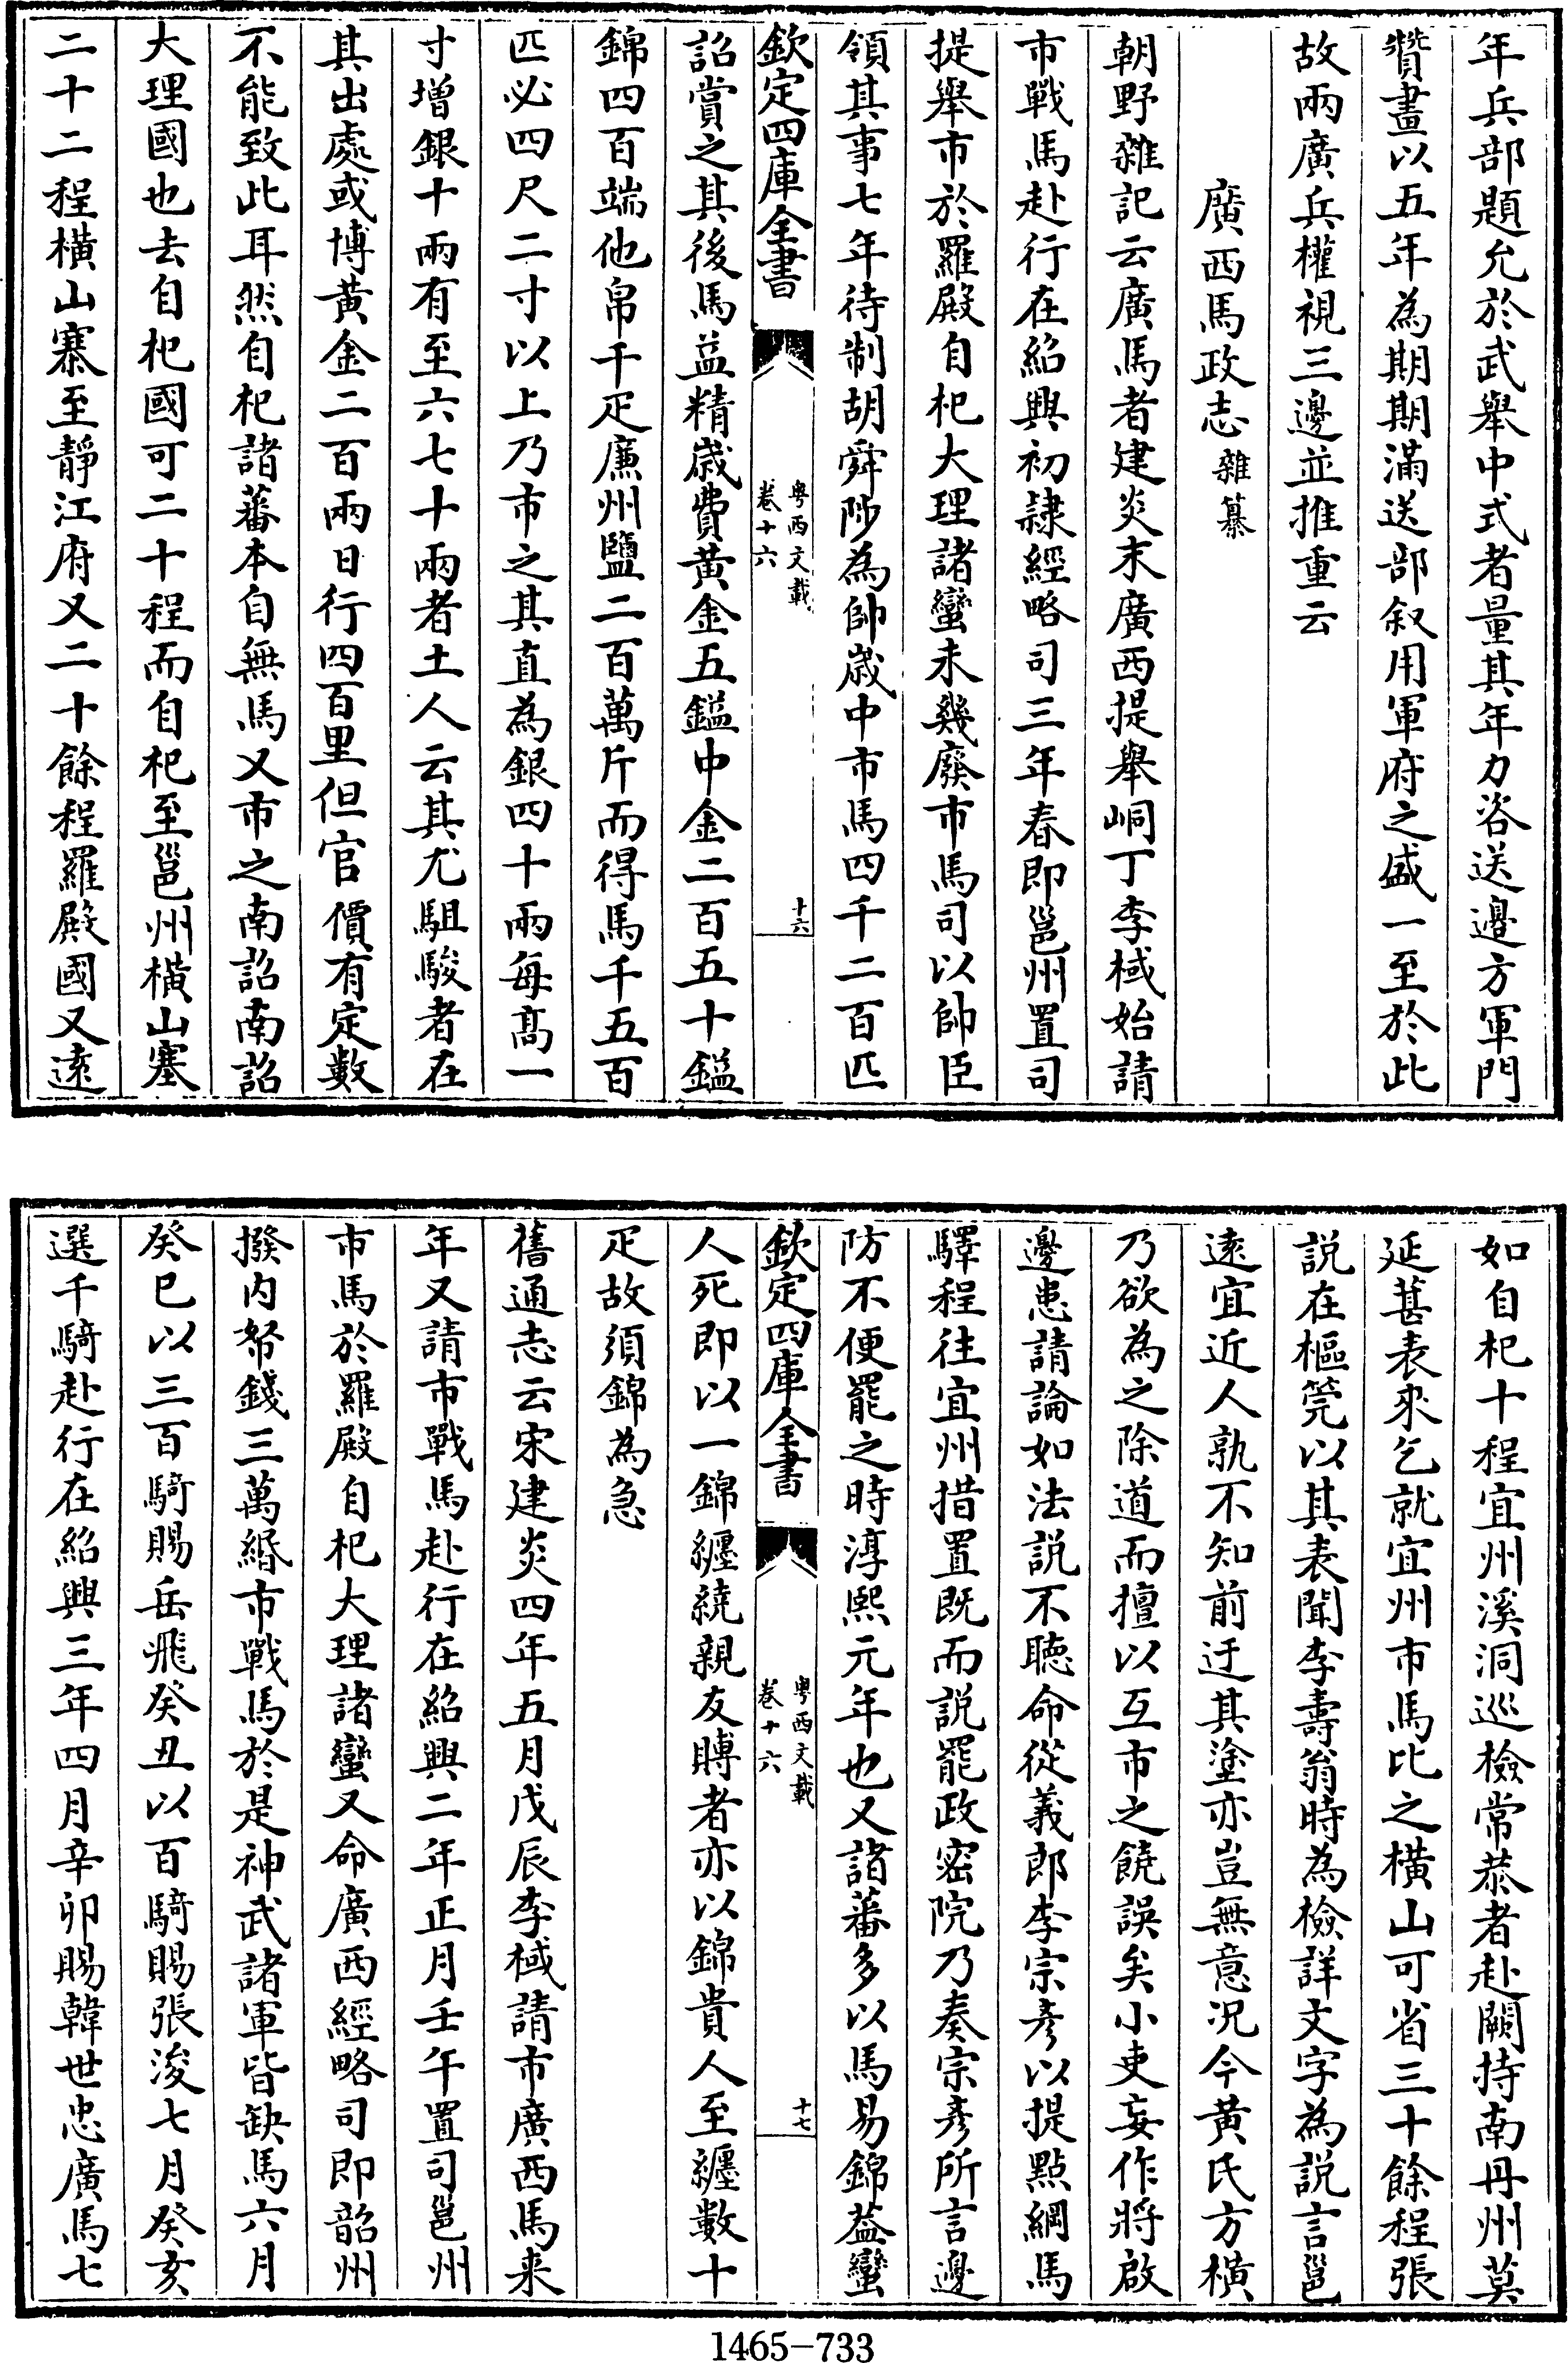 年兵部題允於武舉中式者量其年力咨送邊方軍門
贊畫以五年為期期滿送部叙用軍府之盛一至於此
故兩廣兵權視三邊並推重云
廣西馬政志雜纂
朝野雜記云廣馬者建炎末廣西提舉峒丁李棫始請
市戰馬赴行在紹興初隸經略司三年春即邕州置司
提舉市於羅殿自杞大理諸蠻未幾廢市馬司以帥臣
領其事七年待制胡舜陟為帥歲中市馬四千二百匹
欽定四庫全書
粤西文載
卷十六
十六
詔賞之其後馬益精歲費黄金五鎰中金二百五十鎰
錦四百端他帛千疋廉州鹽二百萬斤而得馬千五百
匹必四尺二寸以上乃市之其直為銀四十兩每高一
寸增銀十兩有至六七十兩者土人云其尤駔駿者在
其出處或博黄金二百兩日行四百里但官價有定數
不能致此耳然自杞諸蕃本自無馬又市之南詔南詔
大理國也去自杞國可二十程而自杞至邕州横山塞
二十二程横山寨至靜江府又二十餘程羅殿國又遠
如自杞十程宜州溪洞巡檢常恭者赴闕持南丹州莫
延葚表來乞就宜州市馬比之横山可省三十餘程張
説在樞筦以其表聞李壽翁時為檢詳文字為説言邕
遠宜近人孰不知前迂其塗亦豈無意况今黄氏方横
乃欲為之除道而擅以互市之饒誤矣小吏妄作將啟
邊患請論如法説不聽命從義郎李宗彦以提點綱馬
驛程往宜州措置既而説罷政密院乃奏宗彦所言邊
防不便罷之時淳熙元年也又諸蕃多以馬易錦葢蠻
欽定四庫全書
粤西文載
卷十六
十七
人死即以一錦纒繞親友賻者亦以錦貴人至纒數十
疋故須錦為急
舊通志云宋建炎四年五月戊辰李棫請市廣西馬来
年又請市戰馬赴行在紹興二年正月壬午置司邕州
市馬於羅殿自杞大理諸蠻又命廣西經略司即韶州
撥内帑錢三萬緡市戰馬於是神武諸軍皆缺馬六月
癸巳以三百騎賜岳飛癸丑以百騎賜張浚七月癸亥
選千騎赴行在紹興三年四月辛卯賜韓世忠廣馬七
1465-733